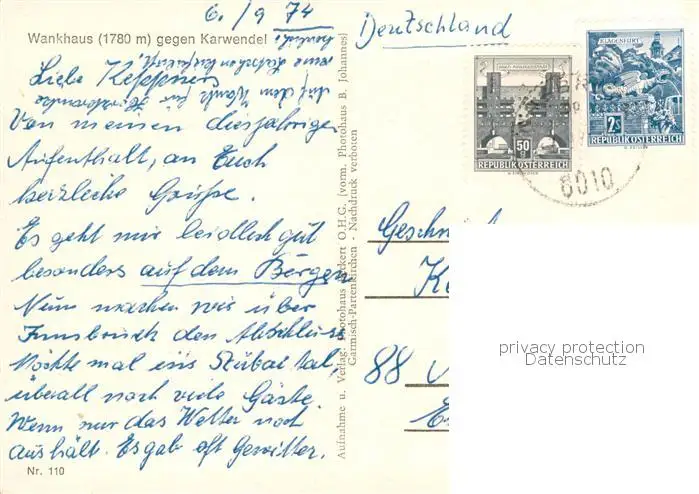 6. / 9 74
Deutschland
Wankhaus (1780 m) gegen Karwendel
Auf dem Wank
Liebe
Von meinen diesjährigen
Aufenthalt, an Euch
herzliche Grüsse.
Es geht mir leidlich gut
besonders auf dem Bergen
Nun machen wir über
Innsbruck den Abschluss
Möchte mal ins Stubai tal,
überall noch viele Gäste
Wenn nur das Wetter noch
aushält. Es gab oft Gewitter.
Nr. 110
Aufnahme u. Verlag: Photohaus Beckert O.H.G. (vorm. Photohaus B. Johannes)
Garmisch-Partenkirchen - Nachdruck verboten
50 g
REPUBLIK ÖSTERREICH
KLAGENFURT
2 S
REPUBLIK ÖSTERREICH
6010
88
privacy protection
Datenschutz